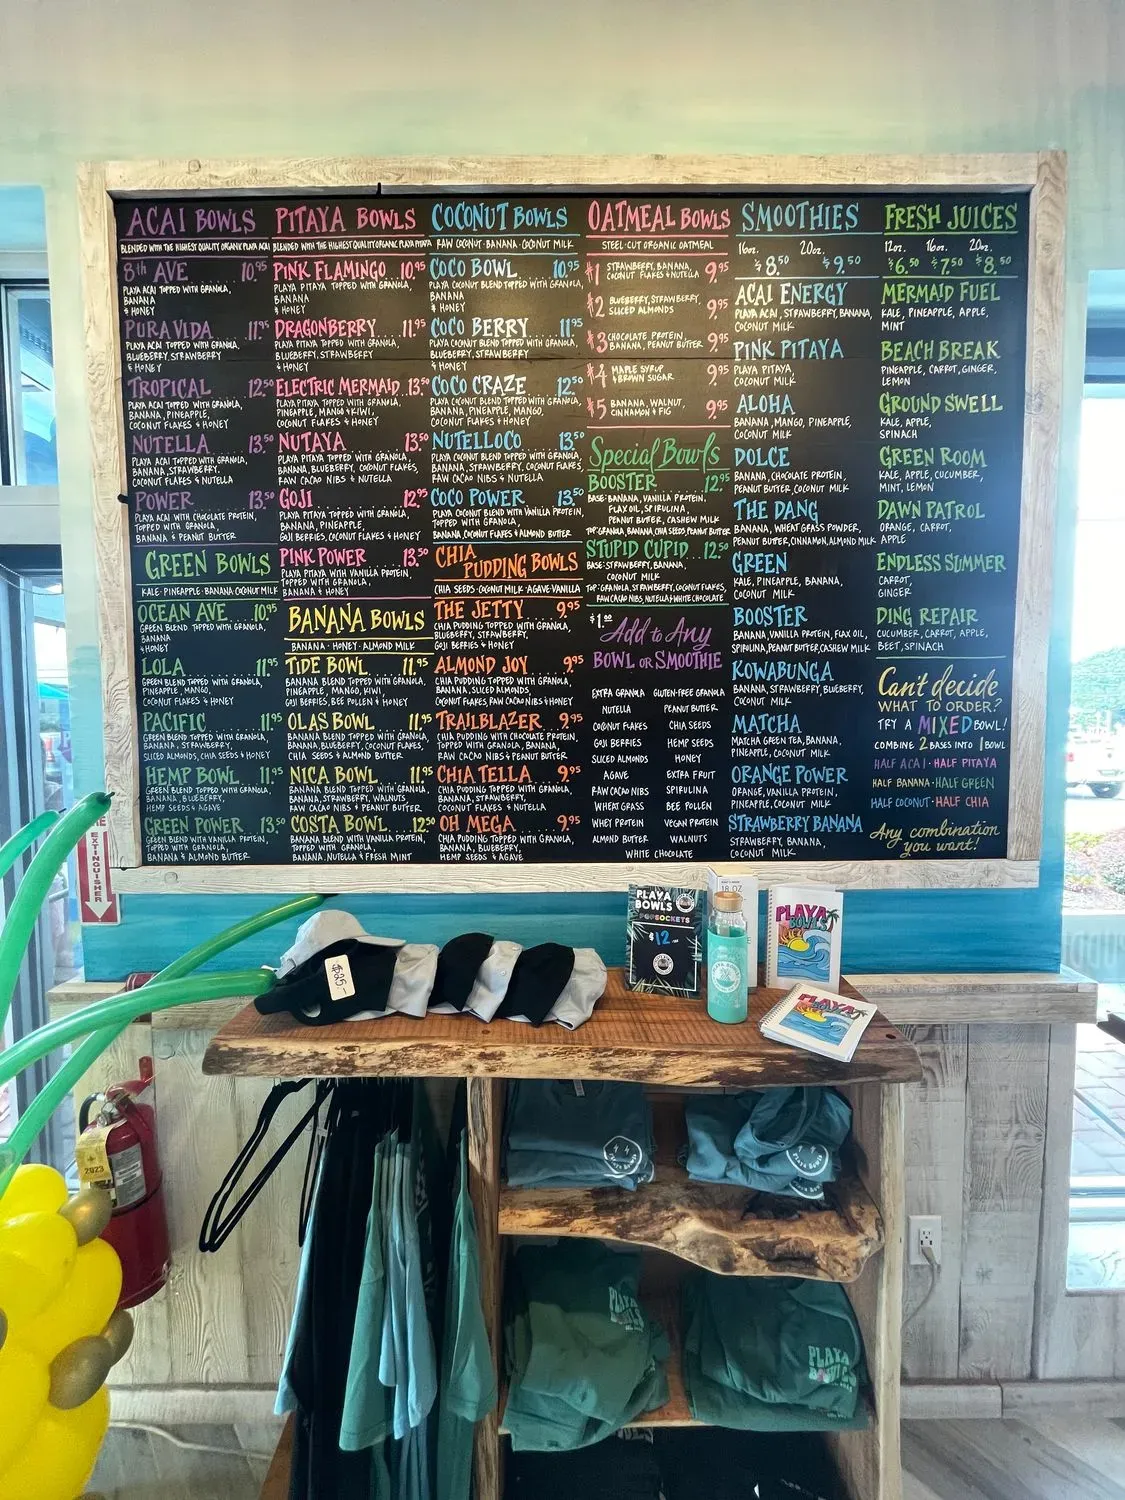 ACAI BOWLS
BLENDED WITH THE HIGHEST QUALITY ORGANIC PLAYA ACAI
8th AVE 10.95
PLAYA ACAI TOPPED WITH GRANOLA,
BANANA
& HONEY
PURA VIDA 11.95
PLAYA ACAI TOPPED WITH GRANOLA,
BLUEBERRY, STRAWBERRY
& HONEY
TROPICAL 12.50
PLAYA ACAI TOPPED WITH GRANOLA,
BANANA, PINEAPPLE,
COCONUT FLAKES & HONEY
NUTELLA 13.50
PLAYA ACAI TOPPED WITH GRANOLA,
BANANA, STRAWBERRY,
COCONUT FLAKES & NUTELLA
POWER 13.50
PLAYA ACAI WITH CHOCOLATE PROTEIN,
TOPPED WITH GRANOLA,
BANANA & PEANUT BUTTER
GREEN BOWLS
KALE · PINEAPPLE · BANANA · COCONUT MILK
OCEAN AVE 10.95
GREEN BLEND TOPPED WITH GRANOLA,
BANANA
& HONEY
LOLA 11.95
GREEN BLEND TOPPED WITH GRANOLA,
PINEAPPLE, MANGO,
COCONUT FLAKES & HONEY
PACIFIC 11.95
GREEN BLEND TOPPED WITH GRANOLA,
BANANA, STRAWBERRY,
SLICED ALMONDS, CHIA SEEDS & HONEY
HEMP BOWL 11.95
GREEN BLEND TOPPED WITH GRANOLA,
BANANA, BLUEBERRY,
HEMP SEEDS & AGAVE
GREEN POWER 13.50
GREEN BLEND WITH VANILLA PROTEIN,
TOPPED WITH GRANOLA,
BANANA & ALMOND BUTTER
PITAYA BOWLS
BLENDED WITH THE HIGHEST QUALITY ORGANIC PLAYA PITAYA
PINK FLAMINGO 10.95
PLAYA PITAYA TOPPED WITH GRANOLA,
BANANA
& HONEY
DRAGONBERRY 11.95
PLAYA PITAYA TOPPED WITH GRANOLA,
BLUEBERRY, STRAWBERRY
& HONEY
ELECTRIC MERMAID 13.50
PLAYA PITAYA TOPPED WITH GRANOLA,
PINEAPPLE, MANGO & KIWI,
COCONUT FLAKES & HONEY
NUTAYA 13.50
PLAYA PITAYA TOPPED WITH GRANOLA,
BANANA, BLUEBERRY, COCONUT FLAKES,
RAW CACAO NIBS & NUTELLA
GOJI 12.95
PLAYA PITAYA TOPPED WITH GRANOLA,
BANANA, PINEAPPLE,
GOJI BERRIES, COCONUT FLAKES & HONEY
PINK POWER 13.50
PLAYA PITAYA WITH VANILLA PROTEIN,
TOPPED WITH GRANOLA,
BANANA & HONEY
BANANA BOWLS
BANANA · HONEY · ALMOND MILK
TIDE BOWL 11.95
BANANA BLEND TOPPED WITH GRANOLA,
PINEAPPLE, MANGO, KIWI,
GOJI BERRIES, BEE POLLEN & HONEY
OLAS BOWL 11.95
BANANA BLEND TOPPED WITH GRANOLA,
BANANA, BLUEBERRY, COCONUT FLAKES,
CHIA SEEDS & ALMOND BUTTER
NICA BOWL 11.95
BANANA BLEND TOPPED WITH GRANOLA,
BANANA, STRAWBERRY, WALNUTS,
RAW CACAO NIBS & PEANUT BUTTER
COSTA BOWL 12.50
BANANA BLEND WITH VANILLA PROTEIN,
TOPPED WITH GRANOLA,
BANANA, NUTELLA & FRESH MINT
COCONUT BOWLS
RAW COCONUT · BANANA · COCONUT MILK
COCO BOWL 10.95
PLAYA COCONUT BLEND TOPPED WITH GRANOLA,
BANANA
& HONEY
COCO BERRY 11.95
PLAYA COCONUT BLEND TOPPED WITH GRANOLA,
BLUEBERRY, STRAWBERRY
& HONEY
COCO CRAZE 12.50
COCONUT BLEND TOPPED WITH GRANOLA,
BANANA, PINEAPPLE, MANGO,
COCONUT FLAKES & HONEY
NUTELLOCO 13.50
PLAYA COCONUT BLEND TOPPED WITH GRANOLA,
BANANA, STRAWBERRY, COCONUT FLAKES,
RAW CACAO NIBS & NUTELLA
COCO POWER 13.50
COCONUT BLEND WITH VANILLA PROTEIN,
TOPPED WITH GRANOLA,
BANANA, COCONUT FLAKES & ALMOND BUTTER
CHIA
PUDDING BOWLS
CHIA SEEDS · COCONUT MILK · AGAVE · VANILLA
THE JETTY 9.95
CHIA PUDDING TOPPED WITH GRANOLA,
BLUEBERRY, STRAWBERRY,
GOJI BERRIES & HONEY
ALMOND JOY 9.95
CHIA PUDDING TOPPED WITH GRANOLA,
BANANA, SLICED ALMONDS,
COCONUT FLAKES, RAW CACAO NIBS & HONEY
TRAILBLAZER 9.95
CHIA PUDDING WITH CHOCOLATE PROTEIN,
TOPPED WITH GRANOLA, BANANA,
RAW CACAO NIBS & PEANUT BUTTER
CHIA TELLA 9.95
CHIA PUDDING TOPPED WITH GRANOLA,
BANANA, STRAWBERRY,
COCONUT FLAKES & NUTELLA
OH MEGA 9.95
CHIA PUDDING TOPPED WITH GRANOLA,
BANANA, BLUEBERRY,
HEMP SEEDS & AGAVE
OATMEAL BOWLS
STEEL-CUT ORGANIC OATMEAL
#1 STRAWBERRY, BANANA, 9.95
COCONUT FLAKES & NUTELLA
#2 BLUEBERRY, STRAWBERRY, 9.95
SLICED ALMONDS
#3 CHOCOLATE PROTEIN, 9.95
BANANA, PEANUT BUTTER
#4 MAPLE SYRUP 9.95
& BROWN SUGAR
#5 BANANA, WALNUT, 9.95
CINNAMON & FIG
Special Bowls
BOOSTER 12.95
BASE: BANANA, VANILLA PROTEIN,
FLAX OIL, SPIRULINA,
PEANUT BUTTER, CASHEW MILK
TOP: GRANOLA, BANANA, CHIA SEEDS, PEANUT BUTTER
STUPID CUPID 12.50
BASE: STRAWBERRY, BANANA,
COCONUT MILK
TOP: GRANOLA, STRAWBERRY, COCONUT FLAKES,
RAW CACAO NIBS, NUTELLA & WHITE CHOCOLATE
$1.00
Add to Any
BOWL OR SMOOTHIE
EXTRA GRANOLA GLUTEN-FREE GRANOLA
NUTELLA PEANUT BUTTER
COCONUT FLAKES CHIA SEEDS
GOJI BERRIES HEMP SEEDS
SLICED ALMONDS HONEY
AGAVE EXTRA FRUIT
RAW CACAO NIBS SPIRULINA
WHEAT GRASS BEE POLLEN
WHEY PROTEIN VEGAN PROTEIN
ALMOND BUTTER WALNUTS
WHITE CHOCOLATE
SMOOTHIES
16oz. 20oz.
$8.50 $9.50
ACAI ENERGY
PLAYA ACAI, STRAWBERRY, BANANA,
COCONUT MILK
PINK PITAYA
PLAYA PITAYA,
COCONUT MILK
ALOHA
BANANA, MANGO, PINEAPPLE,
COCONUT MILK
DOLCE
BANANA, CHOCOLATE PROTEIN,
PEANUT BUTTER, COCONUT MILK
THE DANG
BANANA, WHEAT GRASS POWDER,
PEANUT BUTTER, CINNAMON, ALMOND MILK
GREEN
KALE, PINEAPPLE, BANANA,
COCONUT MILK
BOOSTER
BANANA, VANILLA PROTEIN, FLAX OIL,
SPIRULINA, PEANUT BUTTER, CASHEW MILK
KOWABUNGA
BANANA, STRAWBERRY, BLUEBERRY,
COCONUT MILK
MATCHA
MATCHA GREEN TEA, BANANA,
PINEAPPLE, COCONUT MILK
ORANGE POWER
ORANGE, VANILLA PROTEIN,
PINEAPPLE, COCONUT MILK
STRAWBERRY BANANA
STRAWBERRY, BANANA,
COCONUT MILK
FRESH JUICES
12oz. 16oz. 20oz.
$6.50 $7.50 $8.50
MERMAID FUEL
KALE, PINEAPPLE, APPLE,
MINT
BEACH BREAK
PINEAPPLE, CARROT, GINGER,
LEMON
GROUND SWELL
KALE, APPLE,
SPINACH
GREEN ROOM
KALE, APPLE, CUCUMBER,
MINT, LEMON
DAWN PATROL
ORANGE, CARROT,
APPLE
ENDLESS SUMMER
CARROT,
GINGER
DING REPAIR
CUCUMBER, CARROT, APPLE,
BEET, SPINACH
Can't decide
WHAT TO ORDER?
TRY A MIXED BOWL!
COMBINE 2 BASES INTO 1 BOWL
HALF ACAI · HALF PITAYA
HALF BANANA · HALF GREEN
HALF COCONUT · HALF CHIA
Any combination
you want!
EXTINGUISHER
$25.-
PLAYA
BOWLS
POPSOCKETS
$12
18 OZ
PLAYA
BOWLS
PLAYA
BOWLS
2023
PLAYA BOWLS
PLAYA BOWLS
PLAYA
BOWLS
PLAYA
BOWLS